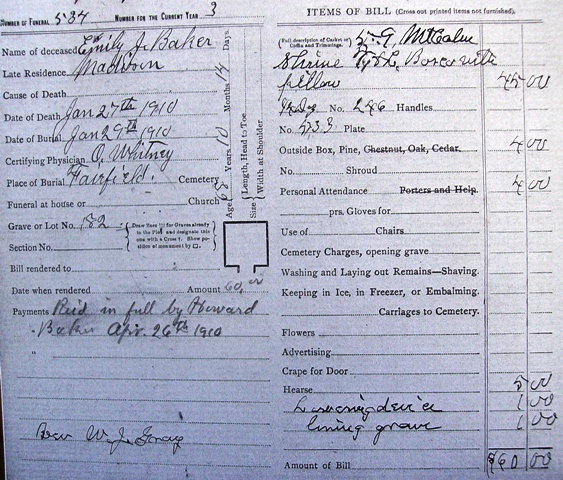 NUMBER OF FUNERAL 534 NUMBER FOR THE CURRENT YEAR 3
Name of deceased Emily J. Baker
Late Residence Madison
Cause of Death
Date of Death Jan 27th 1910
Date of Burial Jan 29th 1910
Certifying Physician O. Whitney
Place of Burial Fairfield. Cemetery
Funeral at house or Church
Grave or Lot No. 152 { Draw lines for Graves already in the Plot and designate this one with a Cross †. Show position of monument by □. }
Section No.
Bill rendered to
Date when rendered Amount 60.00
Payments Paid in full by Howard
Baker Apr. 26th 1910
"
Rev W. J.
Age 68 Years 10 Months 14 Days.
Size { Length, Head to Toe
Width at Shoulder
ITEMS OF BILL (Cross out printed items not furnished).
(Full description of Casket or Coffin and Trimmings.) 5-9 Metcalm
Shrine
pillow 45 00
No. 246 Handles
No. 533 Plate
Outside Box, Pine, Chestnut, Oak, Cedar. 4 00
No. Shroud
Personal Attendance Porters and Help. 4 00
prs. Gloves for
Use of Chairs
Cemetery Charges, opening grave
Washing and Laying out Remains—Shaving.
Keeping in Ice, in Freezer, or Embalming.
Carriages to Cemetery.
Flowers
Advertising
Crape for Door
Hearse 5 00
Lowering device 1 00
lining grave 1 00
Amount of Bill $60 00